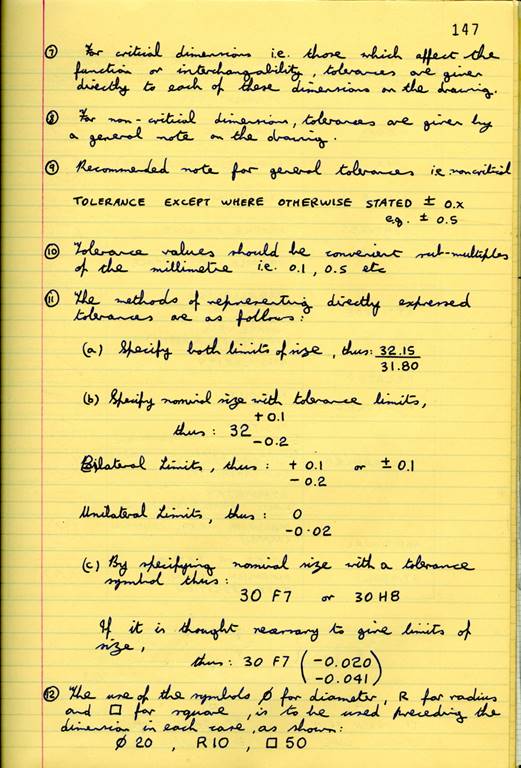 147
⑦ For critical dimensions i.e. those which affect the
function or interchangability, tolerances are given
directly to each of these dimensions on the drawing.
⑧ For non-critical dimension, tolerances are given by
a general note on the drawing.
⑨ Recommended note for general tolerances ie noncritical
TOLERANCE EXCEPT WHERE OTHERWISE STATED ± 0.X
e.g. ± 0.5
⑩ Tolerance values should be convenient sub-multiples
of the millimetre i.e. 0.1, 0.5 etc
⑪ The methods of representing directly expressed
tolerances are as follows:
(a) Specify both limits of size, thus: 32.15
31.80
(b) Specify nominal size with tolerance limits,
+0.1
thus: 32
-0.2
Bilateral Limits, thus: +0.1 or ±0.1
-0.2
Unilateral Limits, thus: 0
-0.02
(c) By specifying nominal size with a tolerance
symbol thus:
30 F7 or 30 H8
If it is thought necessary to give limits of
size,
thus: 30 F7 (-0.020
-0.041)
⑫ The use of the symbols Ø for diameter, R for radius
and □ for square, is to be used preceding the
dimension in each case, as shown:
Ø 20 , R10 , □ 50